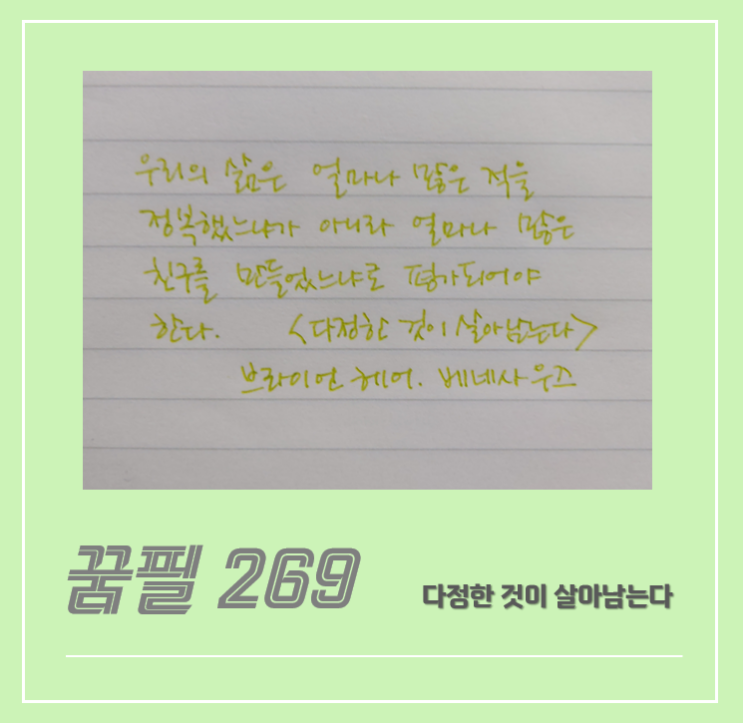 우리의 삶은 얼마나 많은 적을
정복했느냐가 아니라 얼마나 많은
친구를 만들었느냐로 평가되어야
한다. <다정한 것이 살아남는다>
브라이언 헤어. 버네사 우즈
꿈필 269
다정한 것이 살아남는다